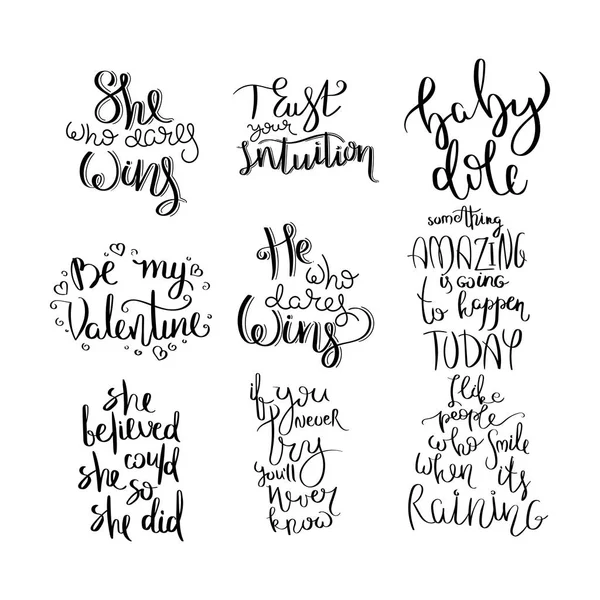 She
who dares
Wins
Trust
your
Intuition
baby
dole
Be my
Valentine
He
who
dares
Wins
something
AMAZING
is GOING
to happen
TODAY
she
believed
could
she so
she did
if you
NEVER
Try
you'll
Never
know
I like
people
who smile
when its
Raining